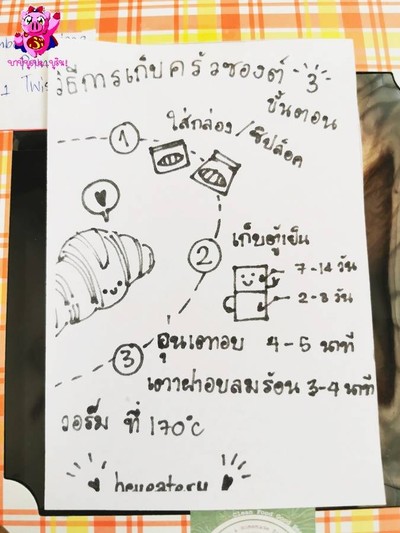 วิธีการเก็บครัวซองต์ 3
ขั้นตอน
1
ใส่กล่อง/ซิปล็อค
2
เก็บตู้เย็น
7-14 วัน
2-3 วัน
3
อุ่นเตาอบ 4-5 นาที
เตาฝาอบลมร้อน 3-4 นาที
วอร์ม ที่ 170°C